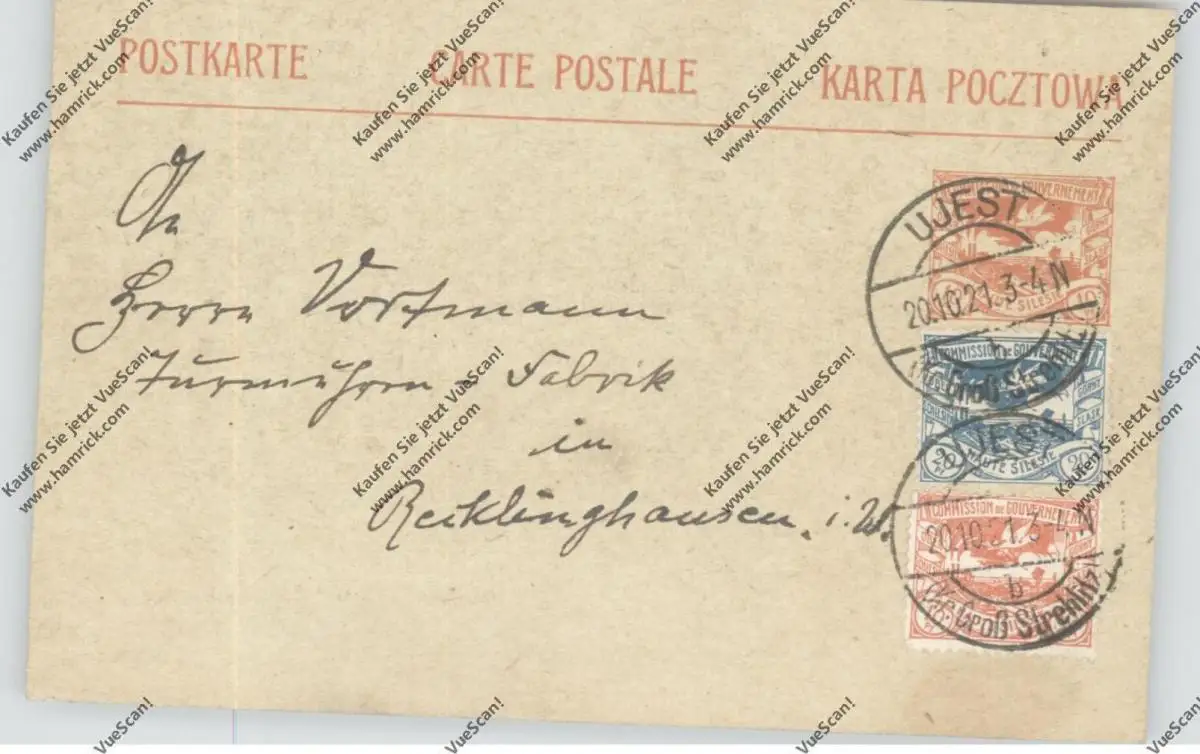 POSTKARTE CARTE POSTALE KARTA POCZTOWA
An
Herrn Vortmann
Turmuhren-Fabrik
in
Recklinghausen. i. W.
COMMISSION DE GOUVERNEMENT
HAUTE SILESIE
UJEST
20.10.21.3-4N
b
(Kr. Groß Strehlitz)
COMMISSION DE GOUVERNEMENT
GÓRNY
ŚLĄSK
20 HAUTE SILESIE 20
UJEST
20.10.21.3-4N
b
(Kr. Groß Strehlitz)
COMMISSION DE GOUVERNEMENT
Kaufen Sie jetzt VueScan!
www.hamrick.com